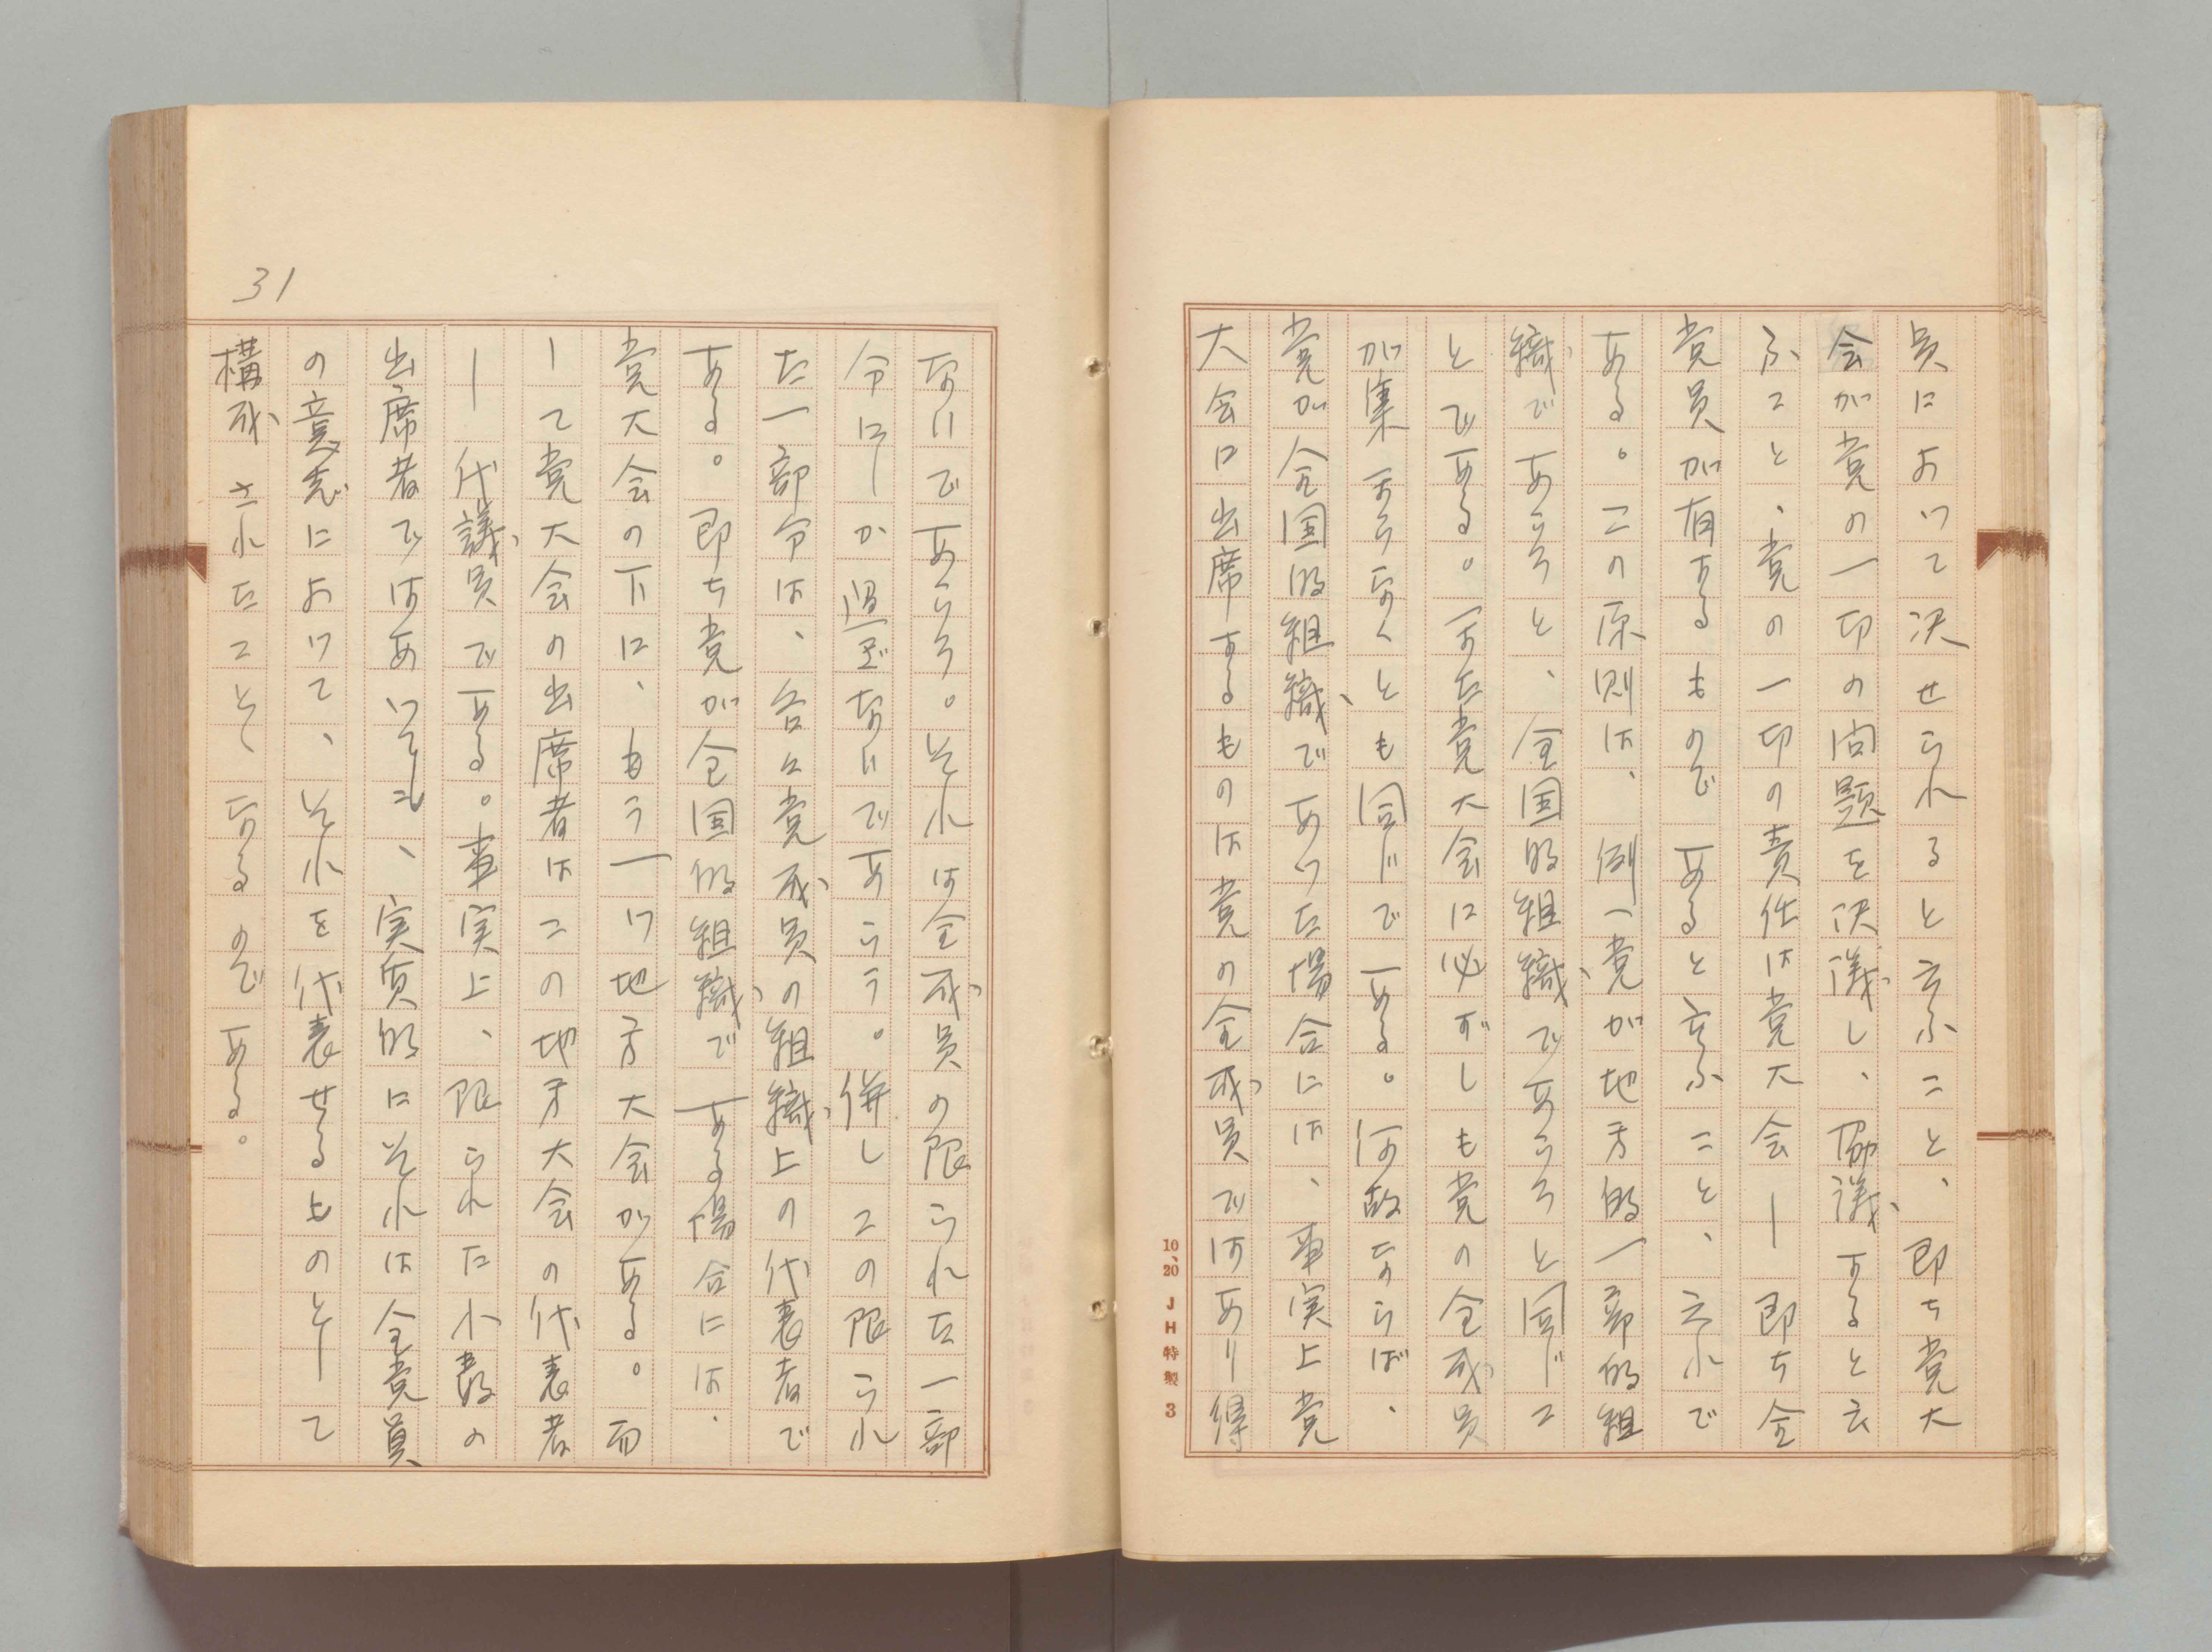 員において決せられると云ふこと、即ち党大
会が党の一切の問題を決議し、協議すると云
ふこと、党の一切の責任は党大会ー即ち全
党員が有するものであると云ふこと、云小で
ある。この原則は、例へ党が地方的一部的組
織であらうと、全国的組織であらうと同じこ
とである。また党大会に必ずしも党の全成員
が集まらなくとも同じである。何故ならば、
党が全国的組織であつた場合には、事実上党
大会に出席するものは党の全成員ではあり得
10、20 JH特製 3
ないであらう。それは全成員の限られた一部
分にしか過ぎないであらう。併しこの限られ
た一部分は、各々党成員の組織上の代表者で
ある。即ち党が全国的組織である場合には、
党大会の下に、もう一つ地方大会がある。而
して党大会の出席者はこの地方大会の代表者
ー代議員である。事実上、限られた小数の
出席者ではあつても、実質的にそれは全党員
の意志において、それを代表せるものとして
構成されたこととなるのである。
31